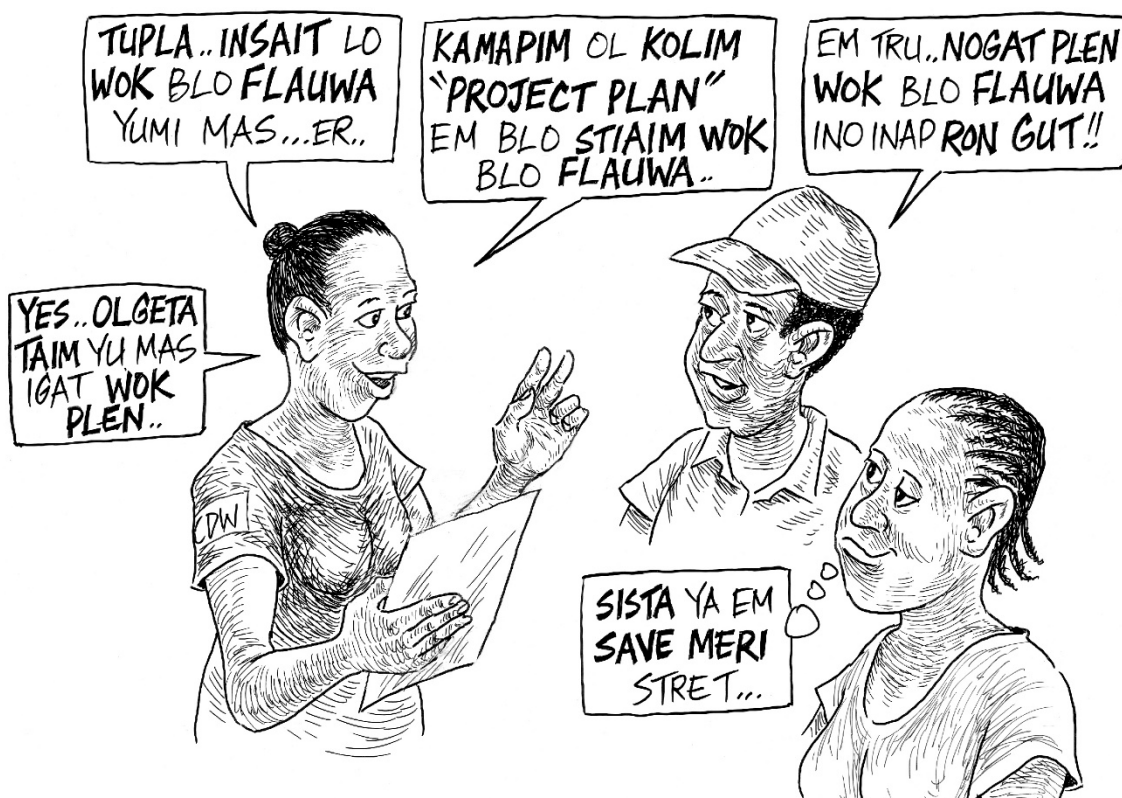 TUPLA..INSAIT LO
WOK BLO FLAUWA
YUMI MAS...ER..
KAMAPIM OL KOLIM
"PROJECT PLAN"
EM BLO STIAIM WOK
BLO FLAUWA..
EM TRU..NOGAT PLEN
WOK BLO FLAUWA
INO INAP RON GUT!!
YES..OLGETA
TAIM YU MAS
IGAT WOK
PLEN..
CDW
SISTA YA EM
SAVE MERI
STRET...